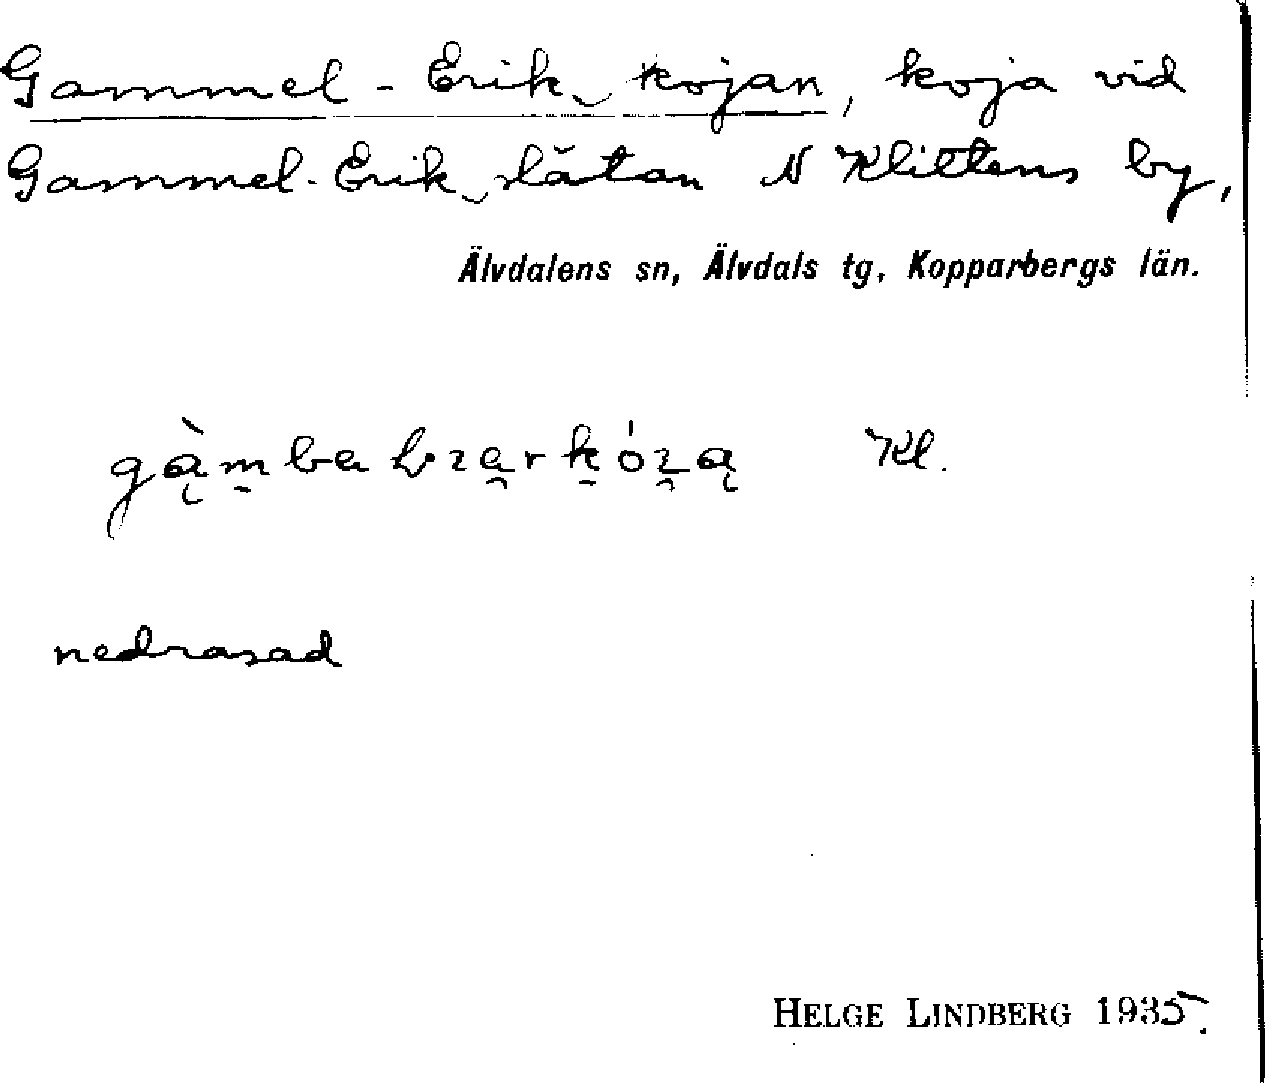 Gammel-Erik kojan, koja vid
Gammel-Erik slåtan N Klittens by,
Älvdalens sn, Älvdals tg, Kopparbergs län.
Kl.
nedrasad
HELGE LINDBERG 1935.